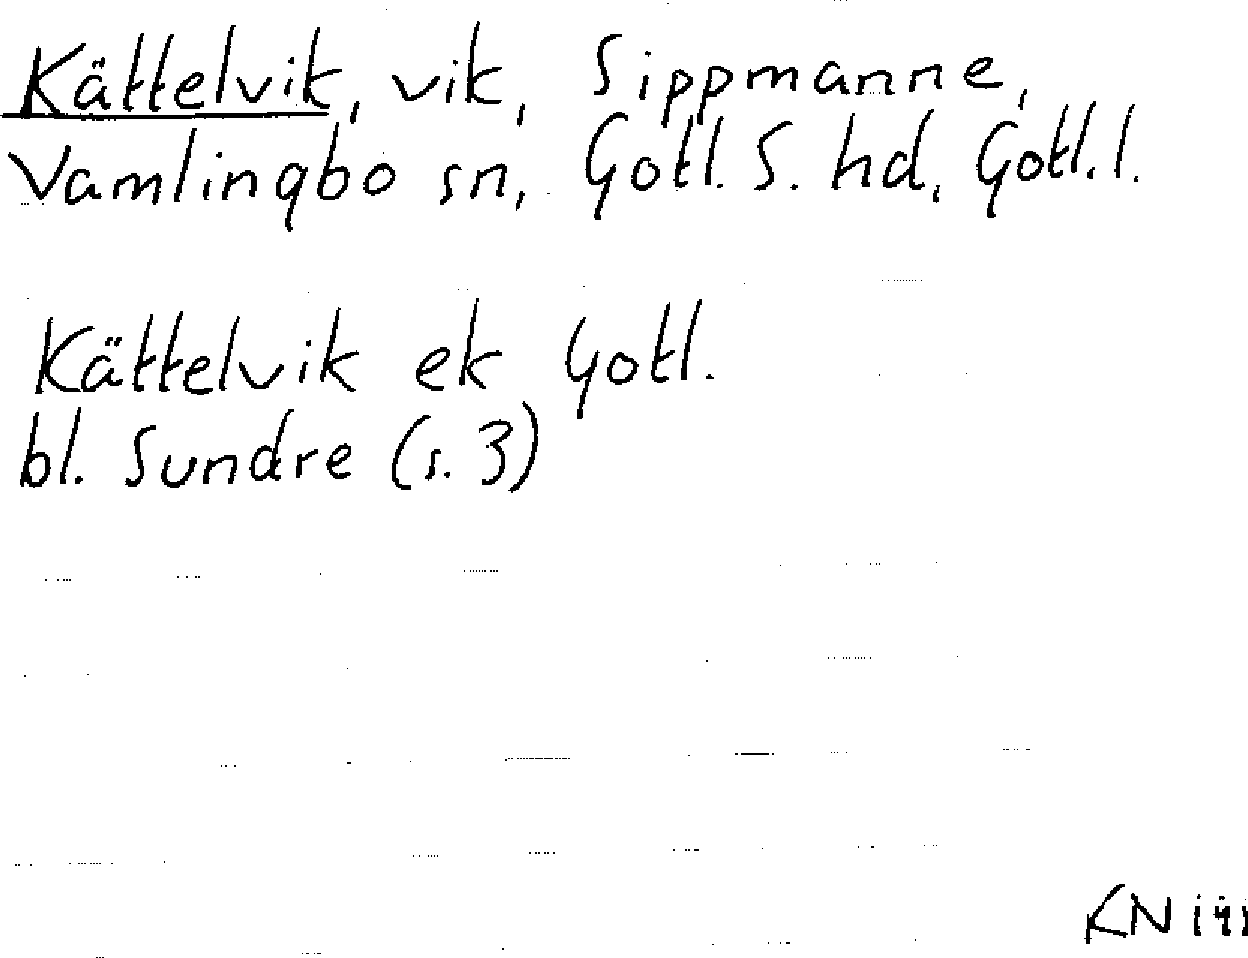 Kättelvik, vik, Sippmanne,
Vamlingbo sn, Gotl. S. hd, Gotl. l.
Kättelvik ek Gotl.
bl. Sundre (s. 3)
KN